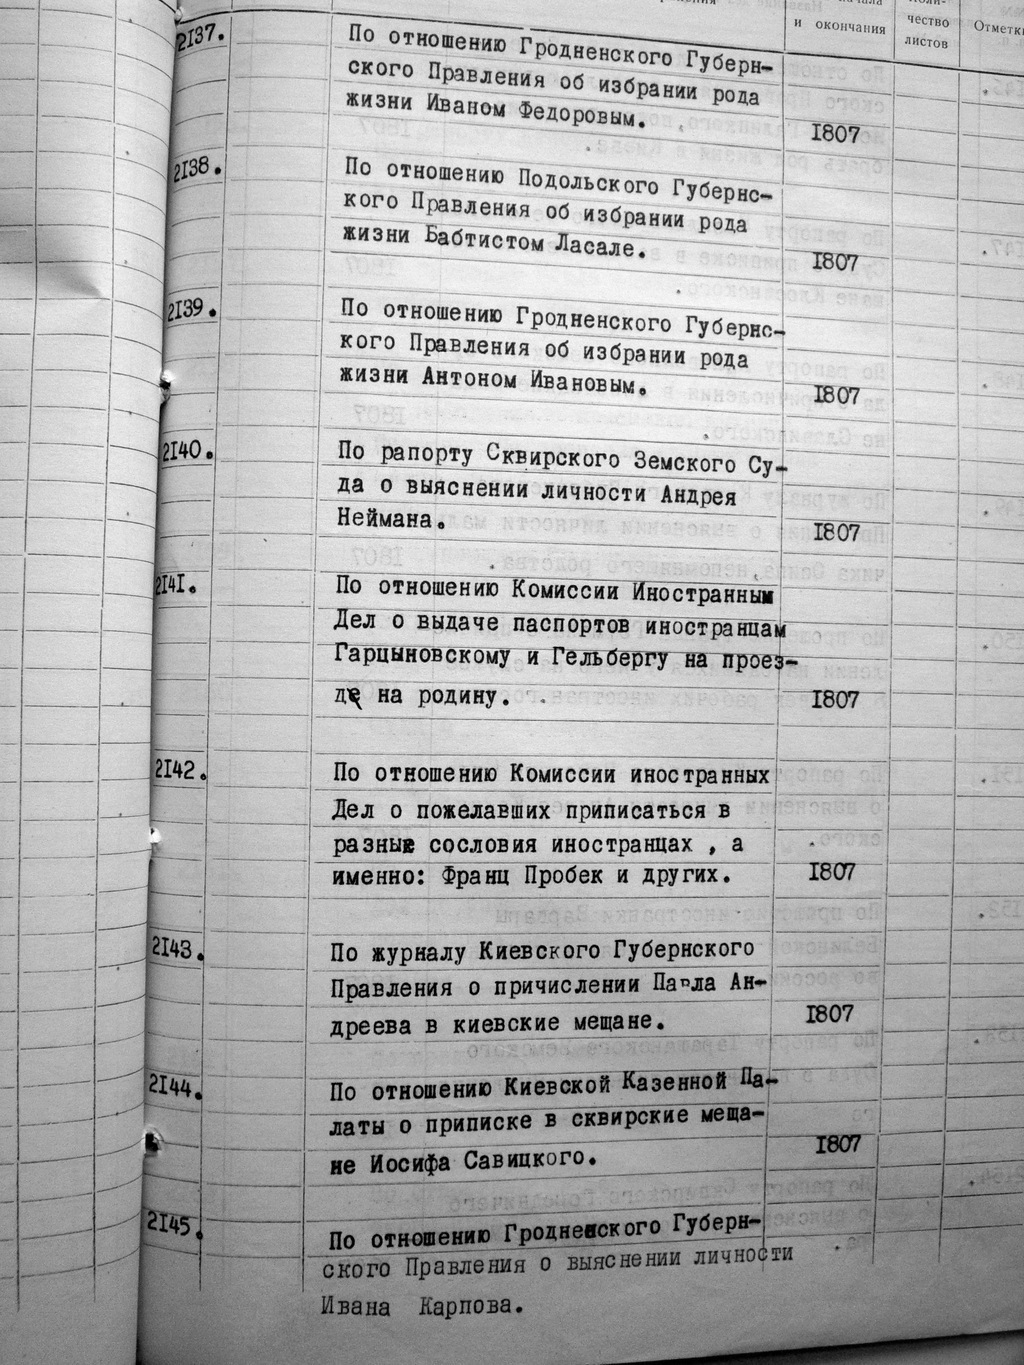 и окончания
чество
листов
2137.
По отношению Гродненского Губерн-
ского Правления об избрании рода
жизни Иваном Федоровым.
1807
2138.
По отношению Подольского Губернс-
кого Правления об избрании рода
жизни Бабтистом Ласале.
1807
2139.
По отношению Гродненского Губернс-
кого Правления об избрании рода
жизни Антоном Ивановым.
1807
2140.
По рапорту Сквирского Земского Су-
да о выяснении личности Андрея
Неймана.
1807
2141.
По отношению Комиссии Иностранным
Дел о выдаче паспортов иностранцам
Гарцыновскому и Гельбергу на проез-
де на родину.
1807
2142.
По отношению Комиссии иностранных
Дел о пожелавших приписаться в
разные сословия иностранцах , а
именно: Франц Пробек и других.
1807
2143.
По журналу Киевского Губернского
Правления о причислении Павла Ан-
дреева в киевские мещане.
1807
2144.
По отношению Киевской Казенной Па-
латы о приписке в сквирские меща-
не Иосифа Савицкого.
1807
2145.
По отношению Гродненского Губерн-
ского Правления о выяснении личности
Ивана Карпова.